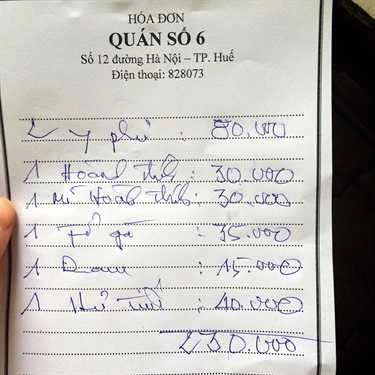 HÓA ĐƠN
QUÁN SỐ 6
Số 12 đường Hà Nội – TP. Huế
Điện thoại: 828073
2 : 80.000
1 Hoành Thánh : 30.000
1 Mì Hoành Thánh : 30.000
1 Phở gà : 35.000
1 : 15.000
1 Hủ Tiếu : 40.000
230.000